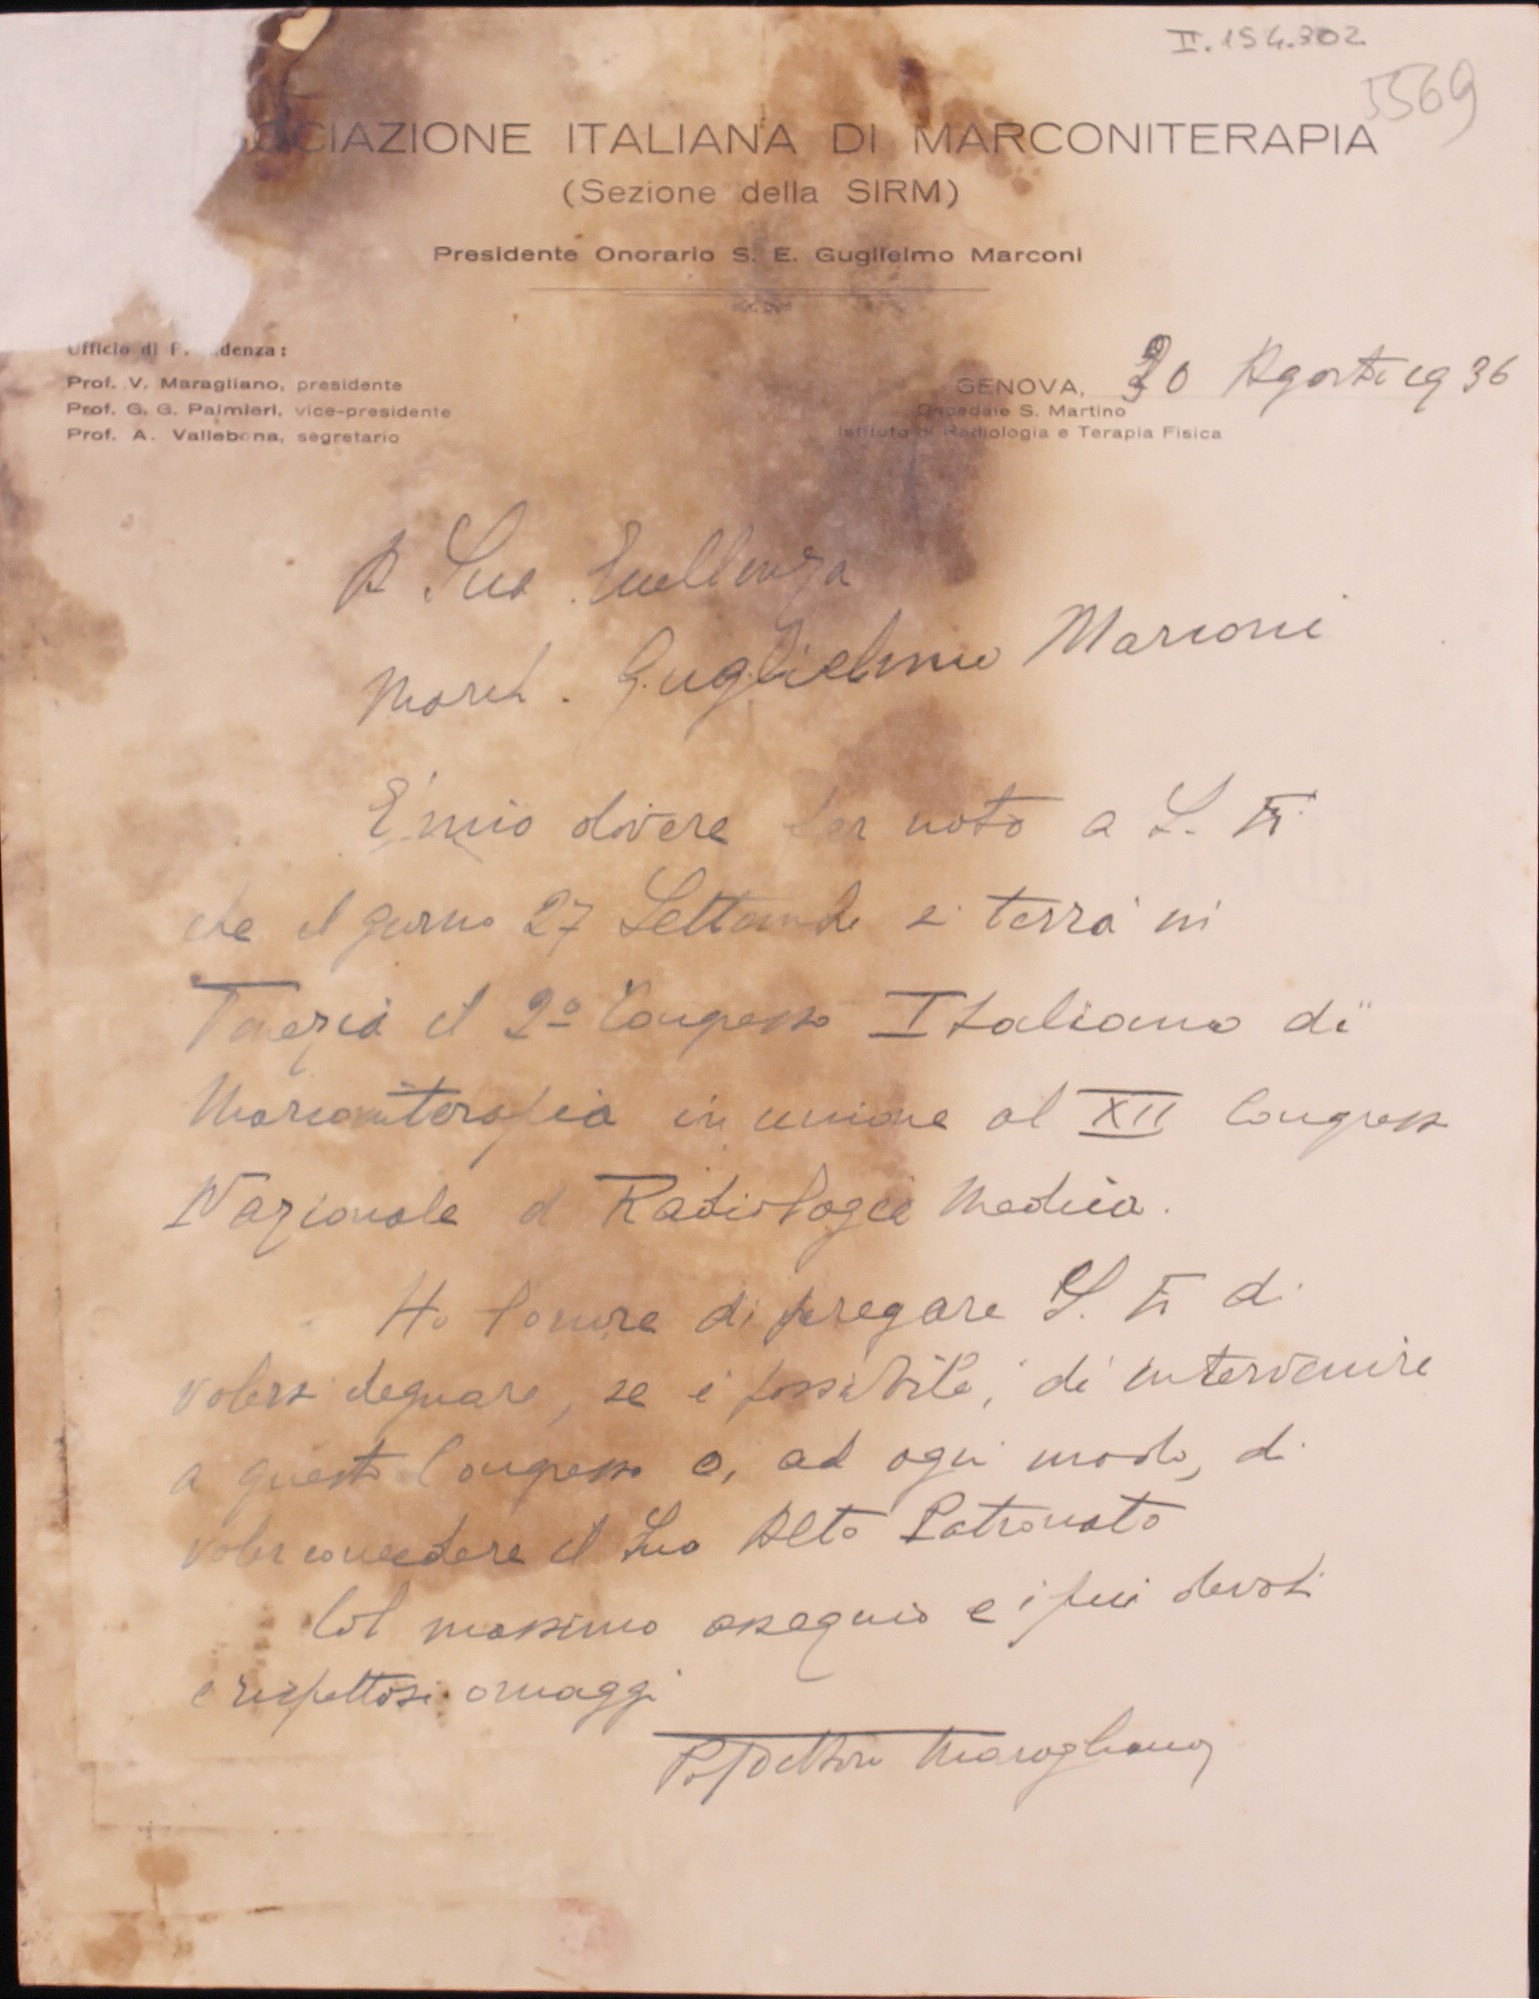 II.154.302
5569
OCIAZIONE ITALIANA DI MARCONITERAPIA
(Sezione della SIRM)
Presidente Onorario S. E. Guglielmo Marconi
Ufficio di P. idenza:
Prof. V. Maragliano, presidente
Prof. G. G. Palmieri, vice-presidente
Prof. A. Vallebona, segretario
GENOVA, 20 Agosto 1936
Ospedale S. Martino
Istituto di Radiologia e Terapia Fisica
A Sua Eccellenza
March. Guglielmo Marconi
E' mio dovere far noto a S. E.
che il giorno 27 Settembre si terrà in
il 2º Congresso Italiano di
Marconiterapia in unione al XII Congresso
Nazionale di Radiologia Medica.
Ho l'onore di pregare S. E. di
volersi degnare, se è possibile, di intervenire
a questo Congresso e, ad ogni modo, di
voler concedere il Suo Alto Patronato
Col massimo ossequio e i più devoti
e rispettosi omaggi
Prof Vittorio Maragliano